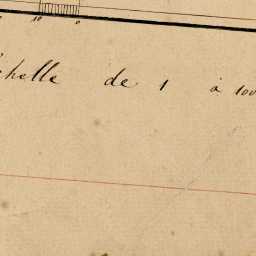 10 0
chelle de 1 à 100